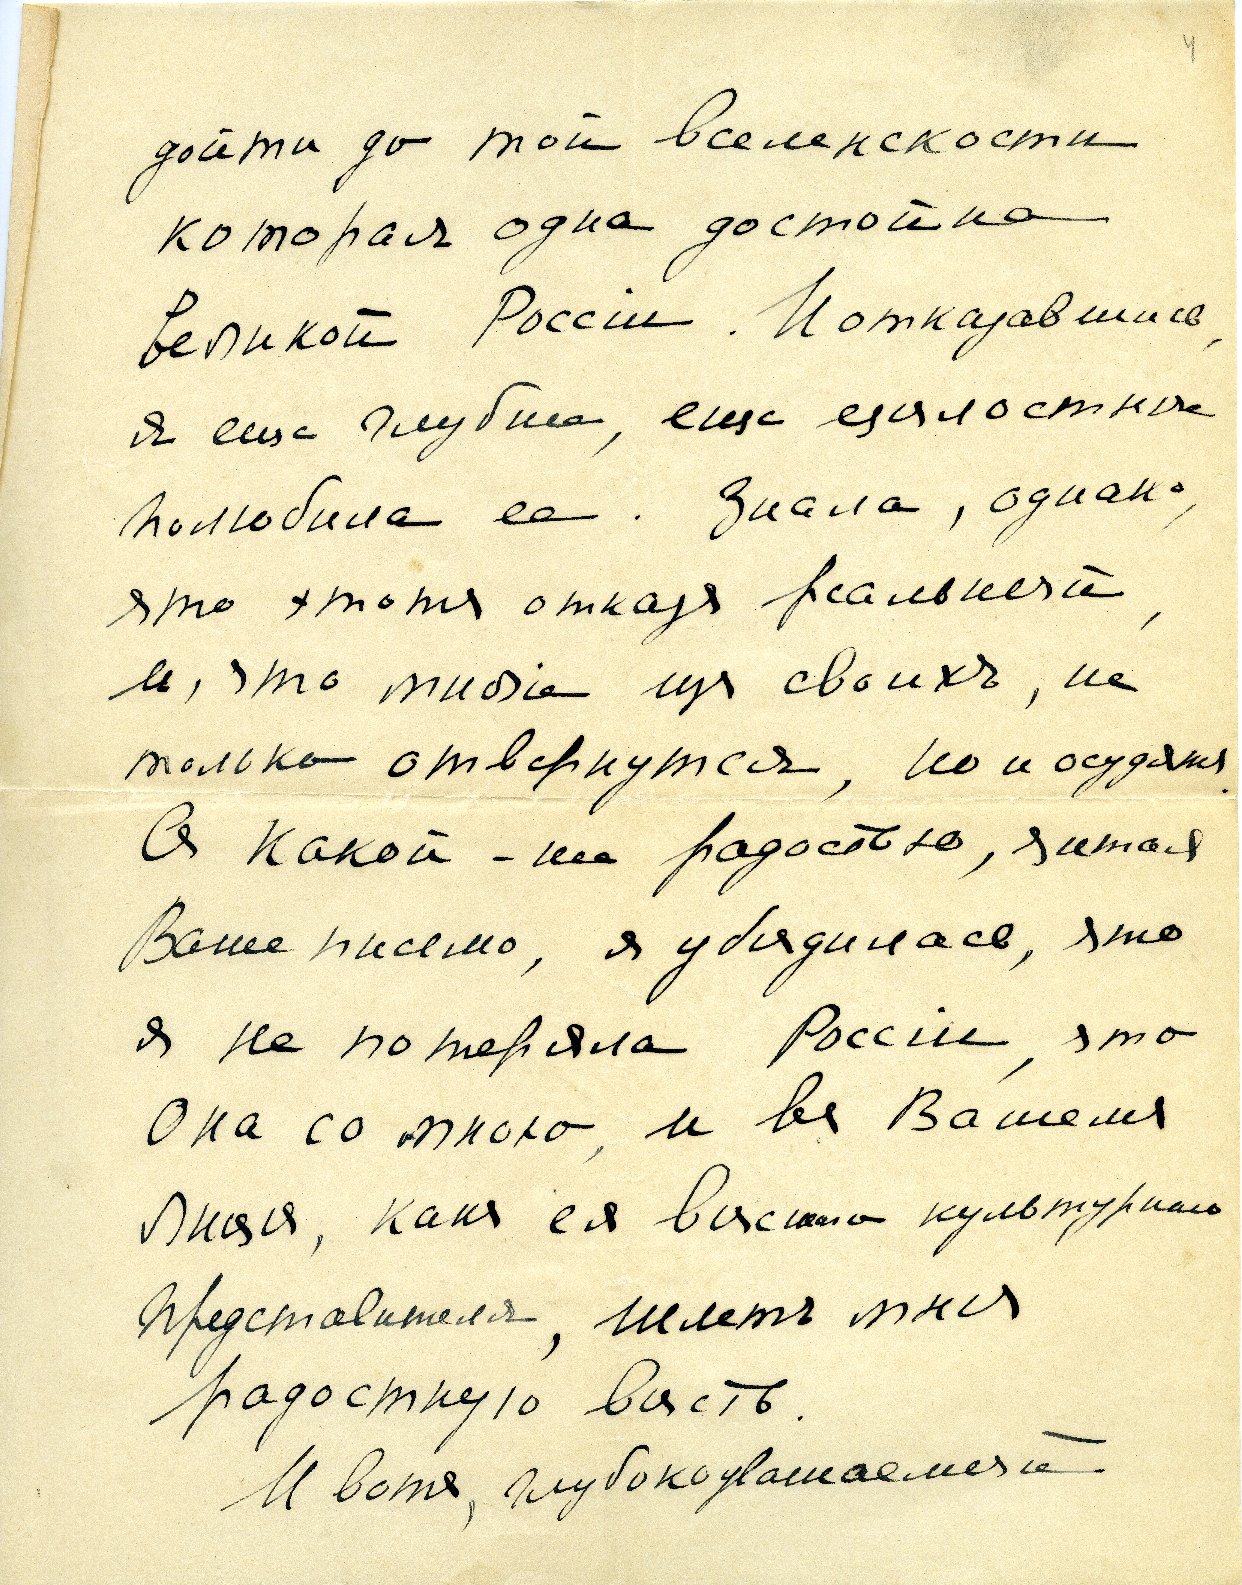 4
дойти до той вселенскости
которая одна достойна
Великой Россіи. И отказавшись,
я еще глубже, еще цѣлостнѣе
полюбила ее. Знала, однако,
что этотъ отказъ реальный,
и, что многіе изъ своихъ, не
только отвернутся, но и осудятъ.
Съ какой-же радостью, читая
Ваше письмо, я убѣдилась, что
я не потеряла Россіи, что
Она со мною, и въ Вашемъ
лицѣ, какъ ея вѣстно культурнаго
представителя, шлетъ мнѣ
радостную вѣсть.
И вотъ, глубокоуважаемый